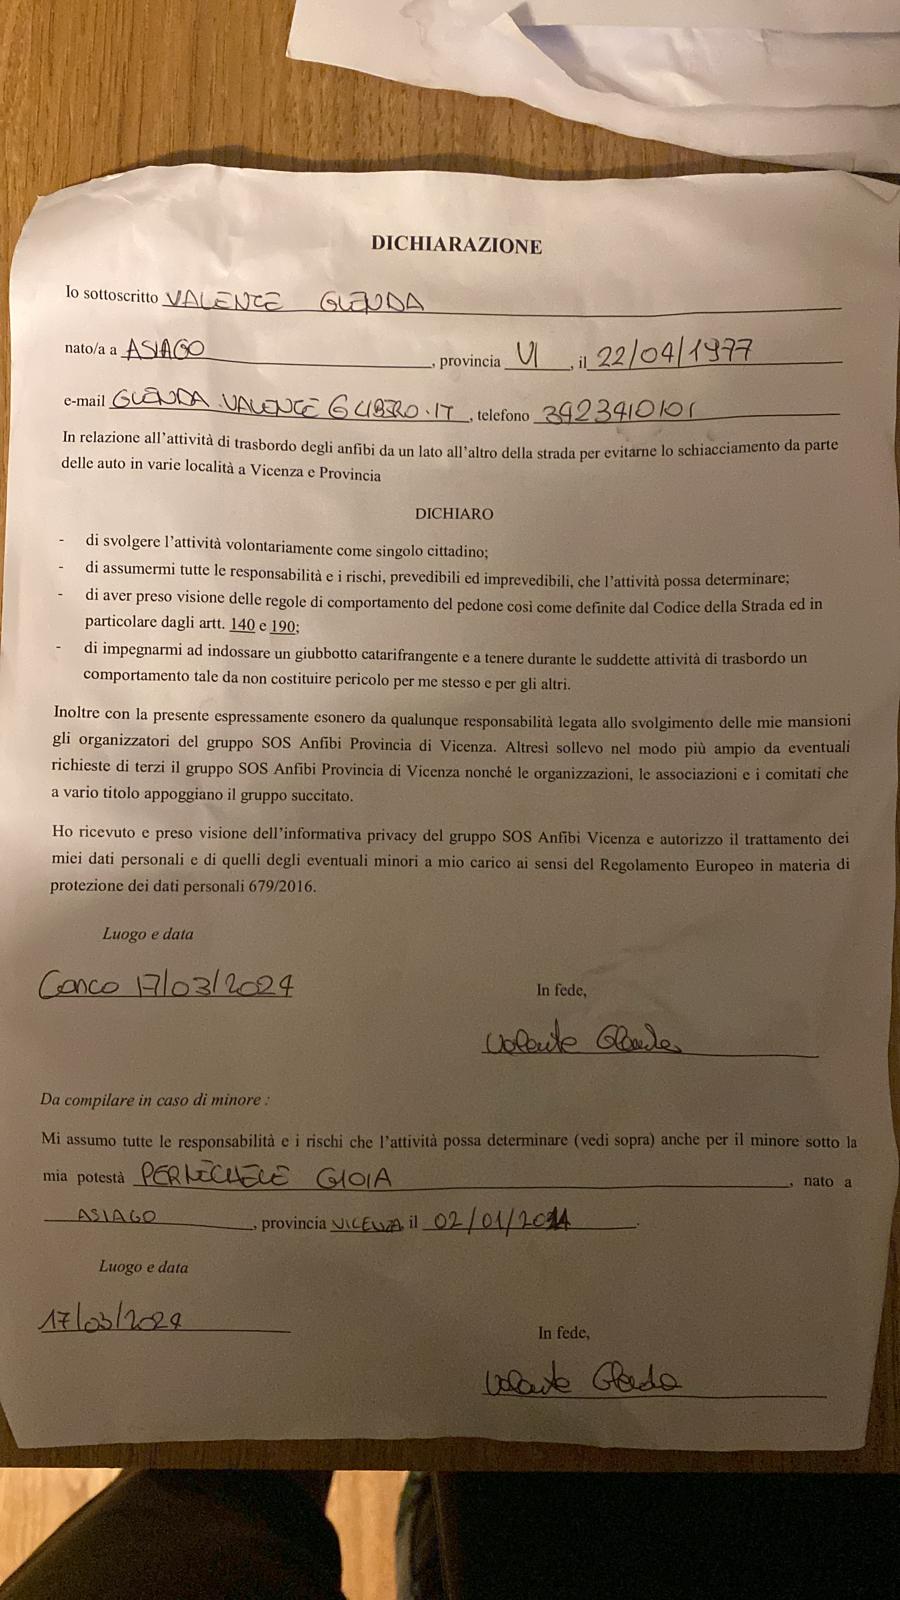 DICHIARAZIONE
Io sottoscritto VALENTE GLENDA
nato/a a ASIAGO , provincia VI , il 22/04/1977
e-mail GLENDA.VALENTE@LIBERO.IT , telefono 3923410101
In relazione all'attività di trasbordo degli anfibi da un lato all'altro della strada per evitarne lo schiacciamento da parte
delle auto in varie località a Vicenza e Provincia
DICHIARO
- di svolgere l'attività volontariamente come singolo cittadino;
- di assumermi tutte le responsabilità e i rischi, prevedibili ed imprevedibili, che l'attività possa determinare;
- di aver preso visione delle regole di comportamento del pedone così come definite dal Codice della Strada ed in
particolare dagli artt. 140 e 190;
- di impegnarmi ad indossare un giubbotto catarifrangente e a tenere durante le suddette attività di trasbordo un
comportamento tale da non costituire pericolo per me stesso e per gli altri.
Inoltre con la presente espressamente esonero da qualunque responsabilità legata allo svolgimento delle mie mansioni
gli organizzatori del gruppo SOS Anfibi Provincia di Vicenza. Altresì sollevo nel modo più ampio da eventuali
richieste di terzi il gruppo SOS Anfibi Provincia di Vicenza nonché le organizzazioni, le associazioni e i comitati che
a vario titolo appoggiano il gruppo succitato.
Ho ricevuto e preso visione dell'informativa privacy del gruppo SOS Anfibi Vicenza e autorizzo il trattamento dei
miei dati personali e di quelli degli eventuali minori a mio carico ai sensi del Regolamento Europeo in materia di
protezione dei dati personali 679/2016.
Luogo e data
Conco 17/03/2024
In fede,
Valente Glenda
Da compilare in caso di minore :
Mi assumo tutte le responsabilità e i rischi che l'attività possa determinare (vedi sopra) anche per il minore sotto la
mia potestà PERNECHELE GIOIA , nato a
ASIAGO , provincia VICENZA, il 02/01/2014 .
Luogo e data
17/03/2024
In fede,
Valente Glenda